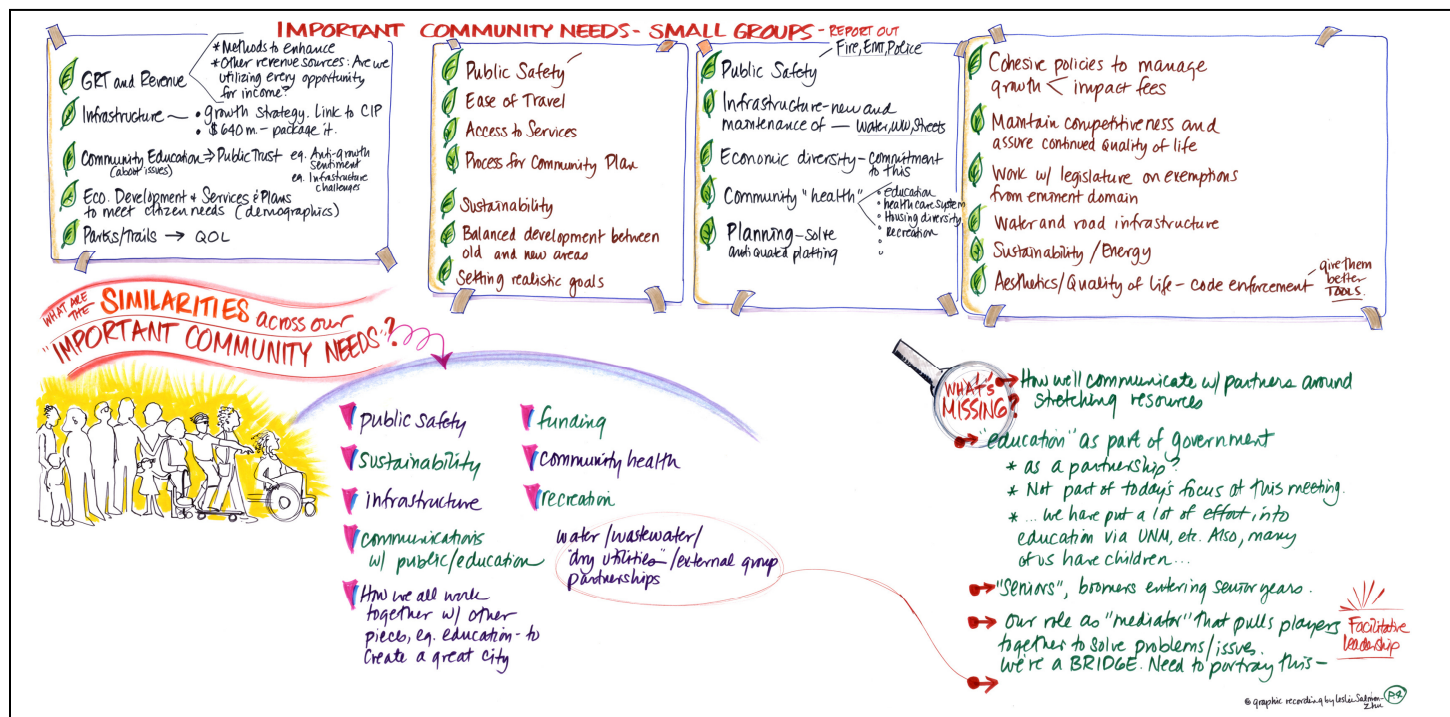 IMPORTANT COMMUNITY NEEDS - SMALL GROUPS - REPORT OUT
GRT and Revenue
* Methods to enhance
* Other revenue sources: Are we
utilizing every opportunity
for income?
Infrastructure
• growth strategy. Link to CIP
• $640 m - package it.
Community Education ⇒ Public Trust
(about issues)
eg. Anti-growth
sentiment
eg. Infrastructure
challenges
Eco. Development & Services & Plans
to meet citizen needs (demographics)
Parks/Trails → QOL
Public Safety
Ease of Travel
Access to Services
Process for Community Plan
Sustainability
Balanced development between
old and new areas
Setting realistic goals
Fire, EMT, Police
Public Safety
Infrastructure - new and
maintenance of — Water, WW, Streets
Economic diversity - commitment
to this
Community "health"
education
health care system
Housing diversity
Recreation
Planning - solve
antiquated platting
Cohesive policies to manage
growth < impact fees
Maintain competitiveness and
assure continued quality of life
Work w/ legislature on exemptions
from eminent domain
Water and road infrastructure
Sustainability / Energy
Aesthetics/Quality of life - code enforcement
give them
better
TOOLS.
WHAT ARE
THE SIMILARITIES across our
"IMPORTANT COMMUNITY NEEDS"?
public safety
sustainability
infrastructure
communications
w/ public/education
How we all work
together w/ other
pieces, eg. education - to
create a great city
funding
community health
recreation
water/wastewater/
"dry utilities"/external group
partnerships
WHAT'S
MISSING?
How we'll communicate w/ partners around
stretching resources
"education" as part of government
* as a partnership?
* Not part of today's focus at this meeting.
* ... we have put a lot of effort, into
education via UNM, etc. Also, many
of us have children...
"Seniors", boomers entering senior years.
Our role as "mediator" that pulls players
together to solve problems/issues.
We're a BRIDGE. Need to portray this -
Facilitative
leadership
© graphic recording by Leslie Salmon-
Zhu
P.2